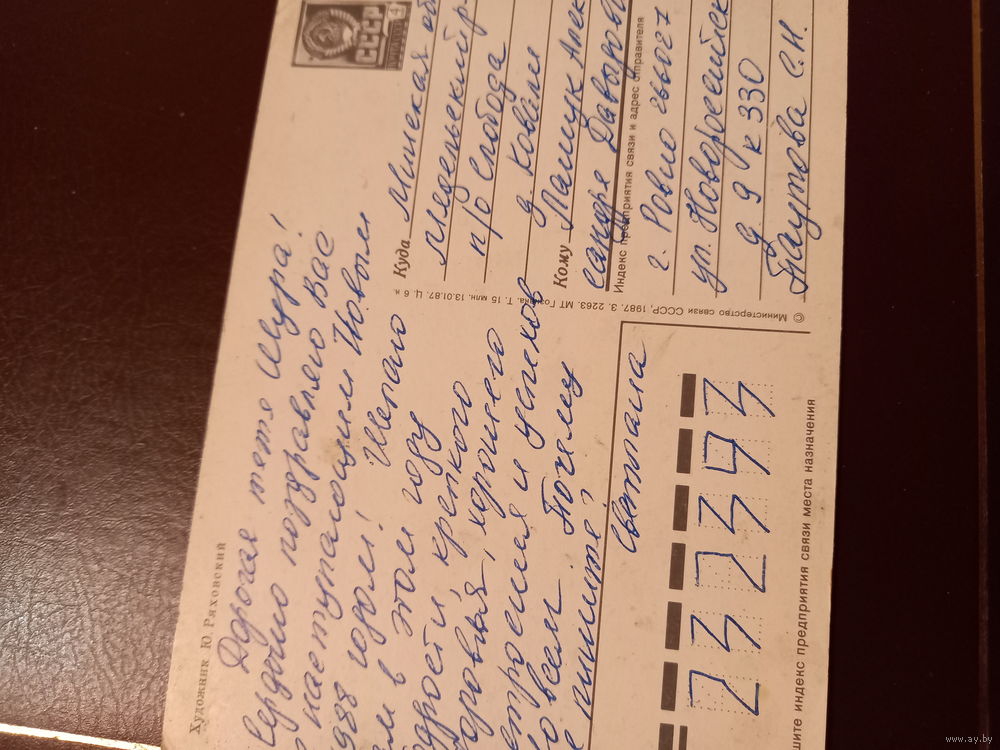 Художник Ю. Ряховский
Дорогая тетя Шура!
сердечно поздравляю Вас
наступающим Новым
1988 годом! Желаю
в этом году
бодрости, крепкого
здоровья, хорошего
настроения и успехов
во всем. Почему
не пишите?
Светлана
© Министерство связи СССР, 1987. З. 2263. МТ Гознака. Т. 15 млн. 13.01.87. Ц. 6 к.
СССР
4
Куда Минская об
Мядельский р
п/о Слобода
д. Ковали
Кому Пашук Алек
сандре Давыдо
Индекс предприятия связи и адрес отправителя
г. Ровно 266027
ул. Новороссийск
д. 9 к 330
С. Н.
23 2343
шите индекс предприятия связи места назначения
www.ay.by